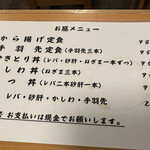 お昼メニュー
から揚げ定食
手羽先定食(手羽先三本)
やきとり丼(レバ・砂肝・ねぎま一本ずつ)
しわ丼(ねぎま三本)
つ丼(レバ二本砂肝一本)
レバ・砂肝・かしわ・手羽先
お支払いは現金でお願いします。